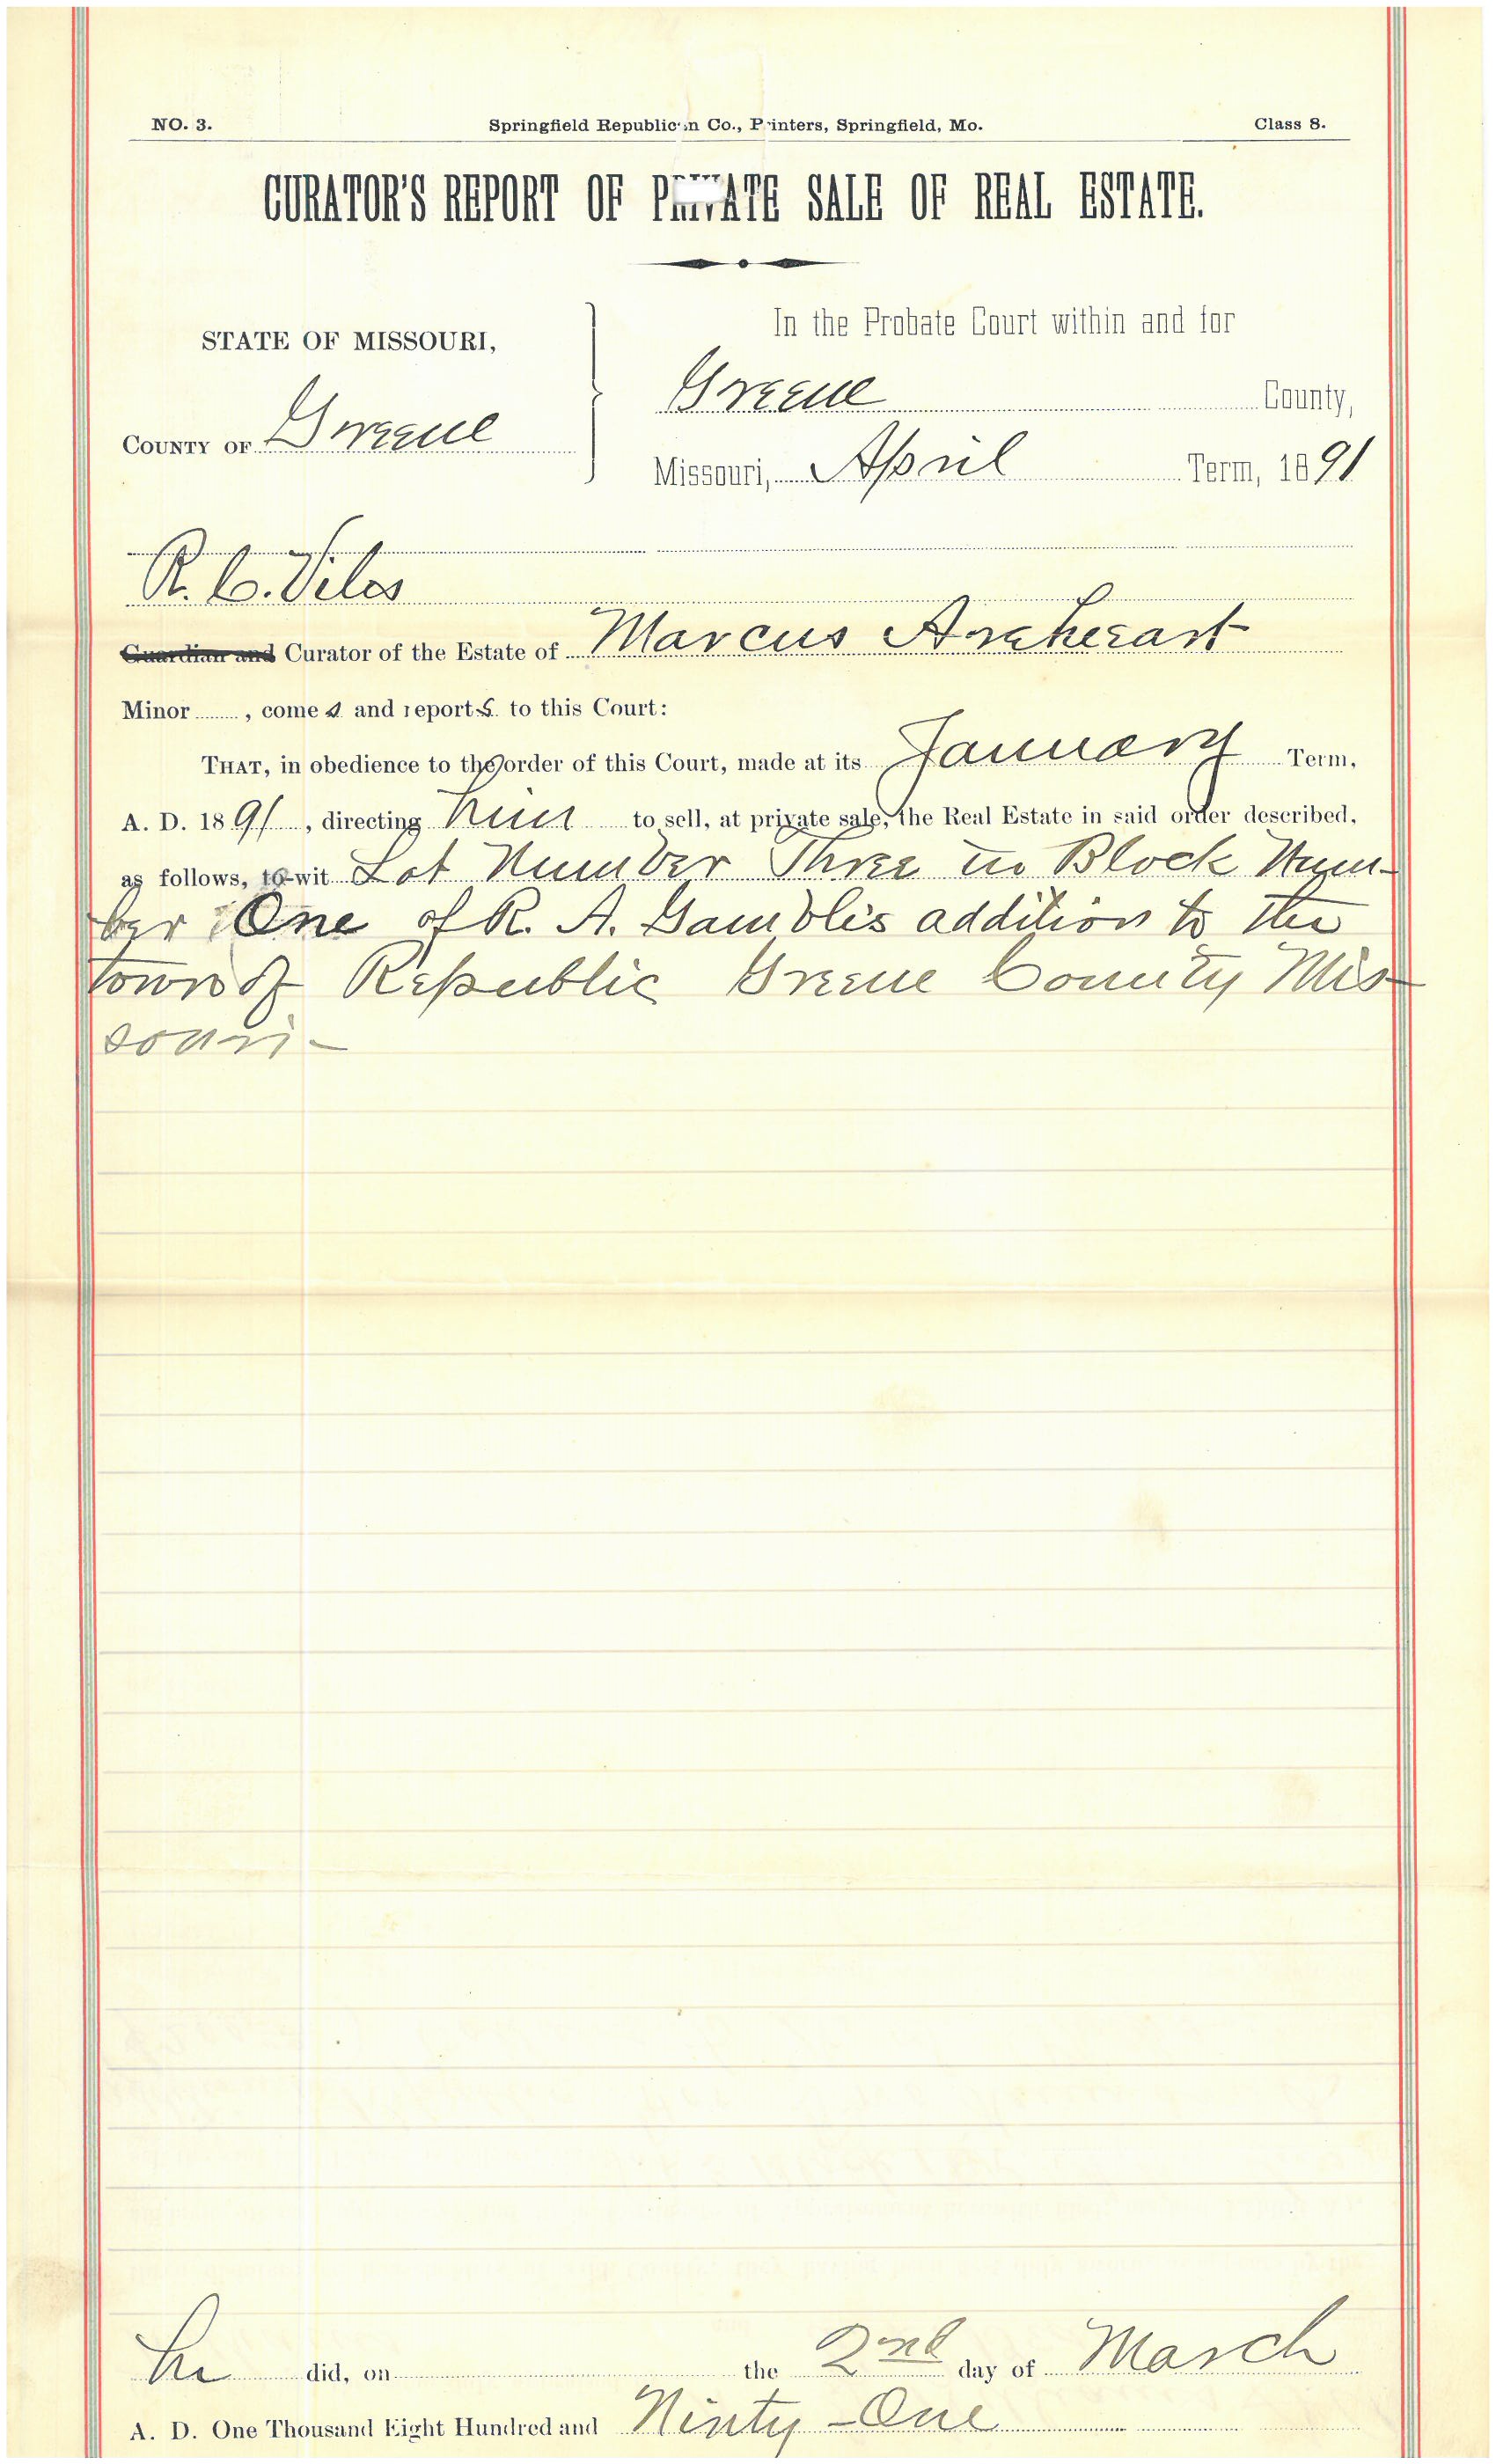 NO. 3. Springfield Republican Co., Printers, Springfield, Mo. Class 8.
CURATOR'S REPORT OF PRIVATE SALE OF REAL ESTATE.
STATE OF MISSOURI,
COUNTY OF Greene
In the Probate Court within and for
Greene County,
Missouri, April Term, 1891
R. C. Viles
Guardian and Curator of the Estate of Marcus Areheart
Minor , comes and reports to this Court:
THAT, in obedience to the order of this Court, made at its January Term,
A. D. 1891 , directing him to sell, at private sale, the Real Estate in said order described,
as follows, to-wit Lot Number Three in Block Num-
ber One of R. A. Gamble's addition to the
town of Republic Greene County Mis-
souri-
he did, on the 2nd day of March
A. D. One Thousand Eight Hundred and Ninty-One